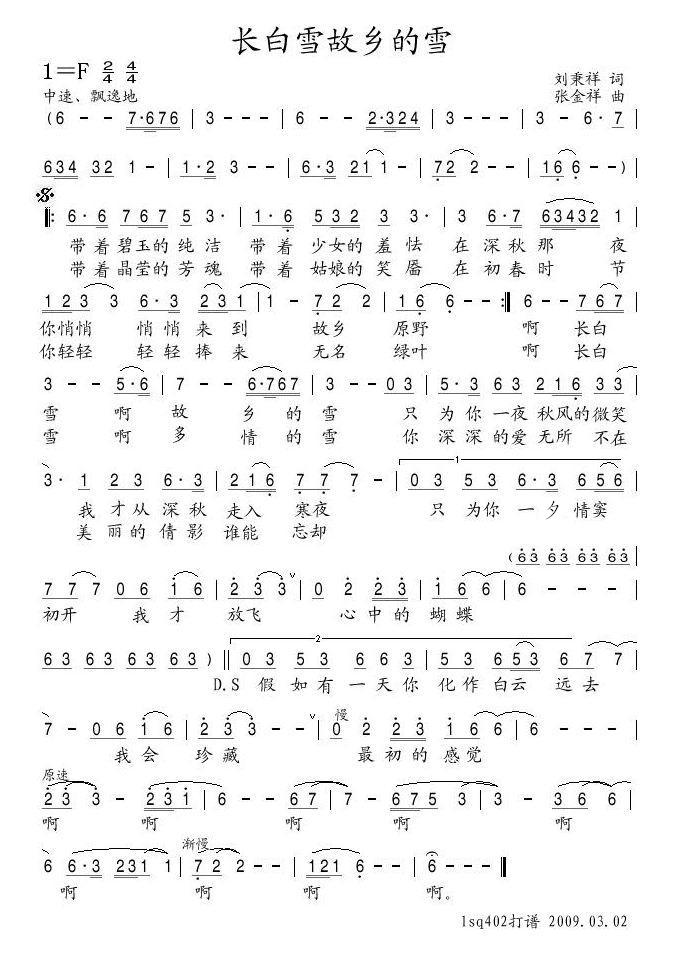 长白雪故乡的雪
1=F 2/4 4/4
刘秉祥 词
中速、飘逸地
张金祥 曲
(6 - - 7·676 | 3 - - - | 6 - - 2·324 | 3 - - - | 3 - 6·7 |
634 32 1 - | 1·2 3 - - | 6·3 21 1 | 72 2 - - | 16 6 - -) |
6·6 767 5 3· | 1·6 532 3 3· | 3 6·7 63432 1 |
带着碧玉的纯洁 带着少女的羞怯 在深秋那 夜
带着晶莹的芳魂 带着姑娘的笑靥 在初春时 节
1 2 3 3 6·3 231 1 | 1 - 7 2 2 | 1 6 6 - - :| 6 - - 767 |
你悄悄 悄悄来到 故乡 原野 啊 长白
你轻轻 轻轻捧来 无名 绿叶 啊 长白
3 - - 5·6 | 7 - - 6·767 | 3 - - 0 3 | 5·3 6 3 216 3 3 |
雪 啊 故 乡的雪 只为你一夜秋风的微笑
雪 啊 多 情的雪 你深深的爱无所不在
3· 1 2 3 6·3 | 216 7 7 7 - | 0 3 5 3 6·3 656 |
1
我才从深秋走入 寒夜 只为你一夕情窦
美丽的倩影谁能 忘却
(63 63 63 63 |
7 7 7 0 6 1 6 | 2 3 3 - - ∨ | 0 2 2 3 | 1 6 6 6 | 6 - - - |
初开 我才 放飞 心中的 蝴蝶
63 63 63 63 ) || 0 3 5 3 6 6 3 | 5 3 653 6 7 7 |
2
D.S 假如有一天你化作白云 远去
7 - 0 6 1 6 | 2 3 3 - - ∨ | 0 2 2 3 1 6 6 | 6 - - - |
慢
我会 珍藏 最初的感觉
原速
2 3 3 - - 231 | 6 - - 6 7 | 7 - - 675 3 | 3 - - 231 |
啊 啊 啊 啊 啊
渐慢
6 6·3 231 1 | 7 2 2 - - | 121 6 - - | 6 - - ||
啊 啊 啊 啊。
lsq402打谱 2009.03.02